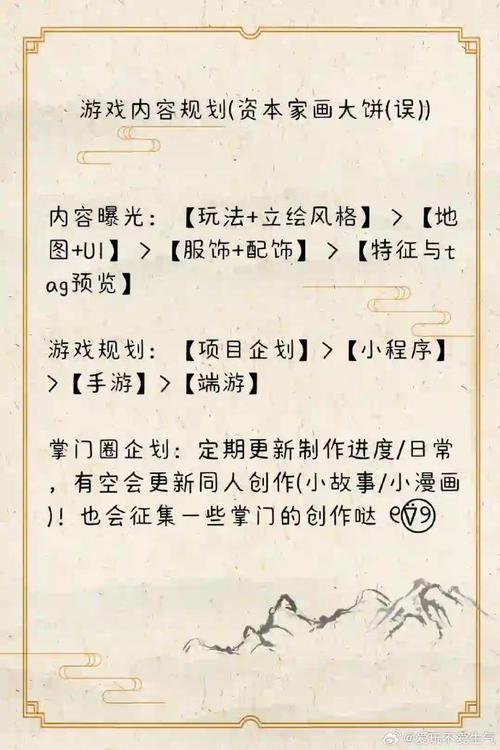 游戏内容规划(资本家画大饼(误))
内容曝光：【玩法+立绘风格】>【地
图+UI】>【服饰+配饰】>【特征与t
ag预览】
游戏规划：【项目企划】>【小程序】
>【手游】>【端游】
掌门圈企划：定期更新制作进度/日常
，有空会更新同人创作(小故事/小漫画
)！也会征集一些掌门的创作哒
@爱玩不爱生气